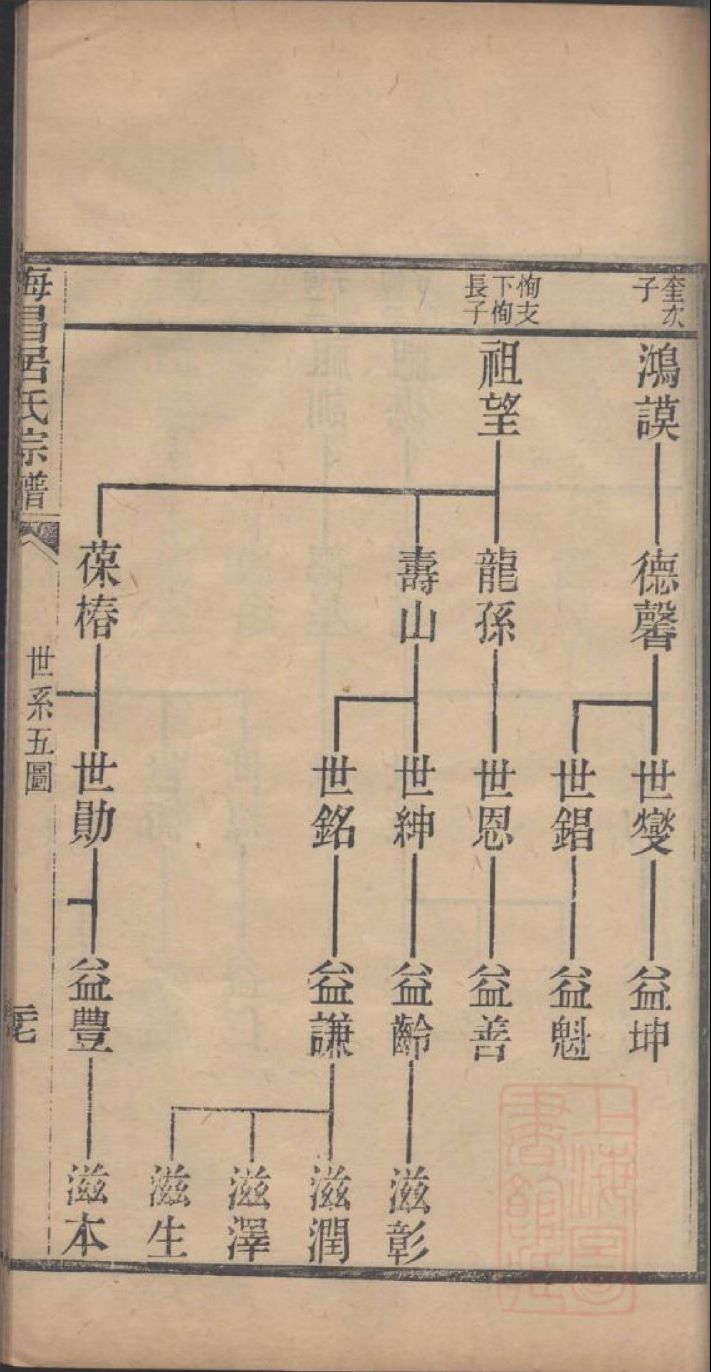 奎次
子
恂支
下恂
長子
鴻謨
祖望
德馨
龍孫
壽山
葆椿
世燮
世錩
世恩
世紳
世銘
世勛
益坤
益魁
益善
益齡
益謙
益豐
滋彰
滋潤
滋澤
滋生
滋本
海昌居氏宗譜
世系五圖
上海圖
書館藏